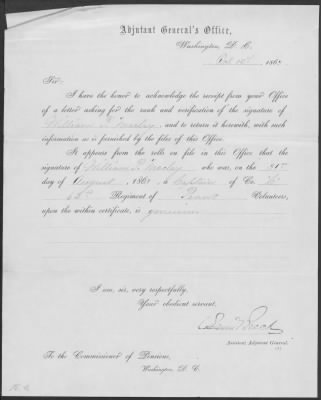 Adjutant General's Office,
Washington, D. C.
186
Sir:
I have the honor to acknowledge the receipt from your Office
of a letter asking for the rank and verification of the signature of
William and to return it herewith, with such
information as is furnished by the files of this Office.
It appears from the rolls on file in this Office that the
signature of William who was, on the 31st
day of August, 186 a Captain of Co.
Regiment of Volunteers,
upon the within certificate, is genuine
I am, sir, very respectfully,
Your obedient servant,
Assistant Adjutant General.
To the Commissioner of Pensions,
Washington, D. C.